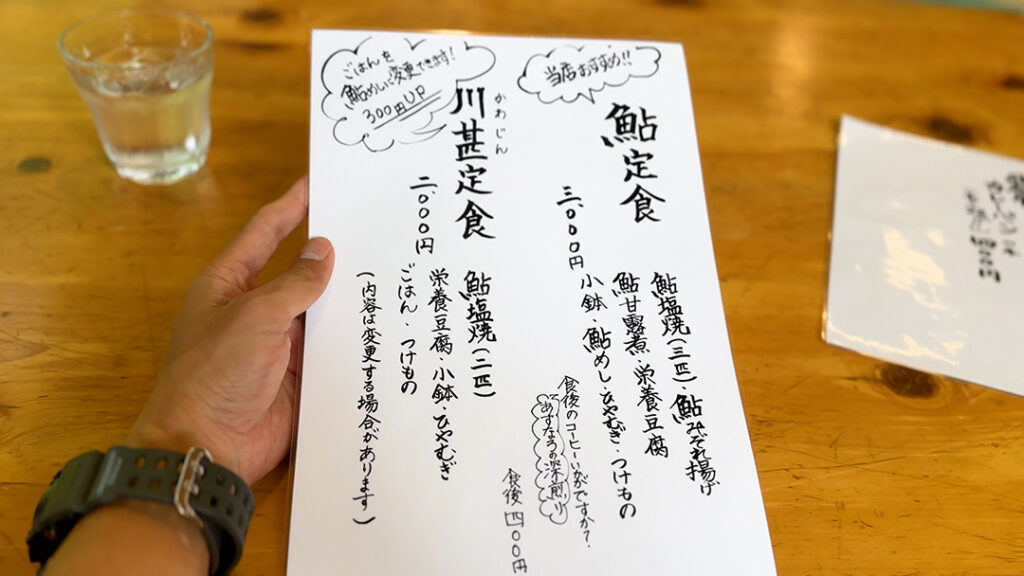 当店おすすめ!!
鮎定食
三、〇〇〇円
鮎塩焼(三匹)・鮎みぞれ揚げ
鮎甘露煮・栄養豆腐
小鉢・鮎めし・ひやむぎ・つけもの
食後のコーヒーいかがですか?
深煎り
食後 四〇〇円
ごはんを
鮎めしに変更できます!
300円UP
かわじん
川甚定食
二、〇〇〇円
鮎塩焼(二匹)
栄養豆腐・小鉢・ひやむぎ
ごはん・つけもの
(内容は変更する場合があります)